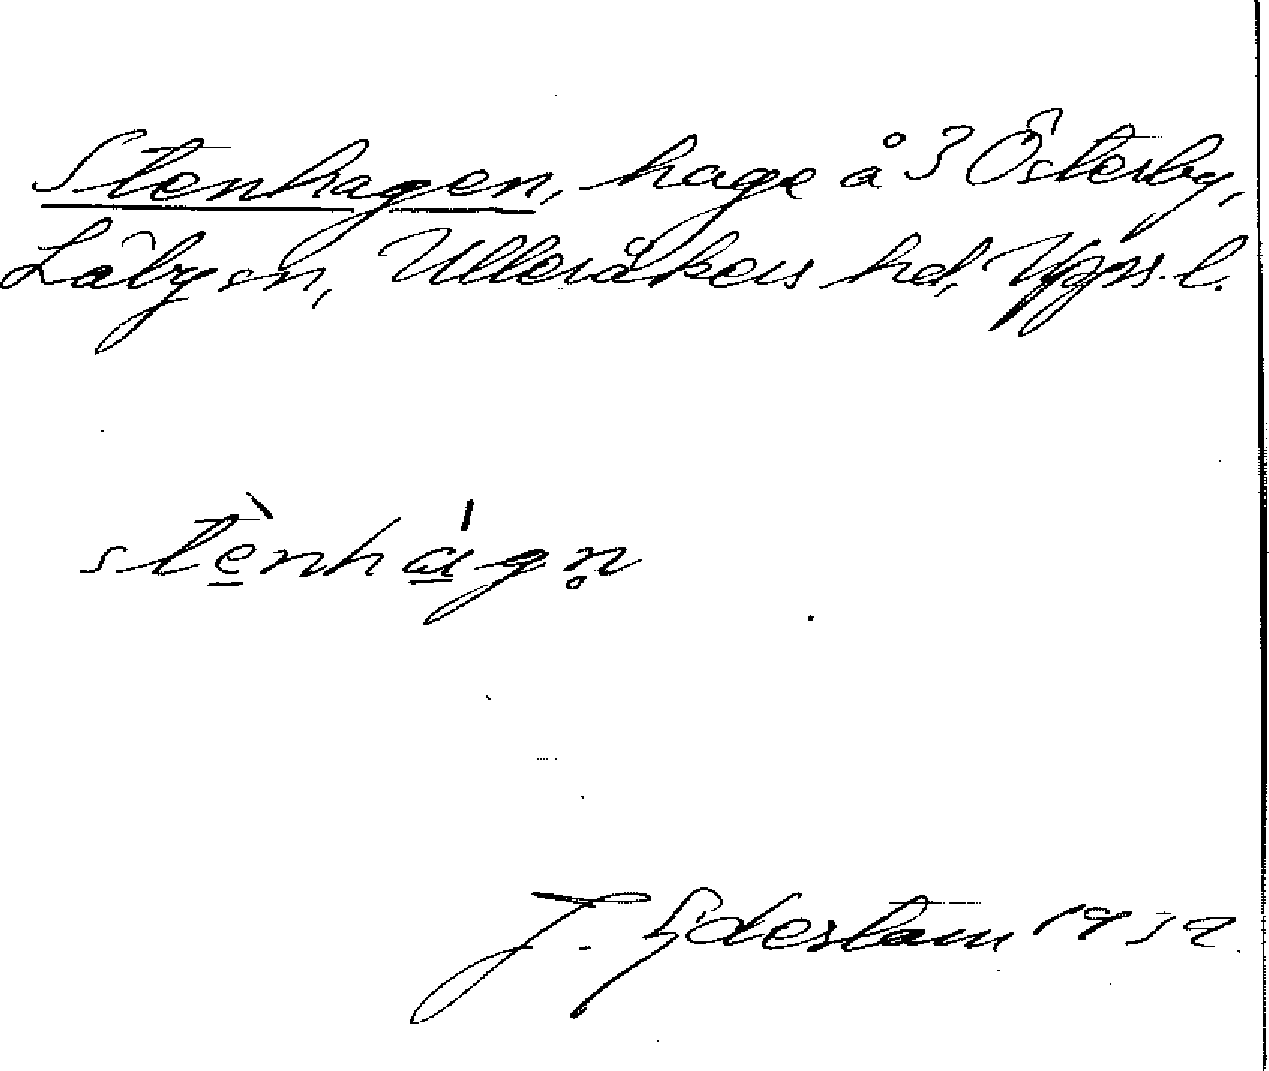 Stenhagen, hage å 3 Österby,
Läby sn, Ulleråkers hd, Upps. l.
stènhágn̥
J. Edestam 1932.